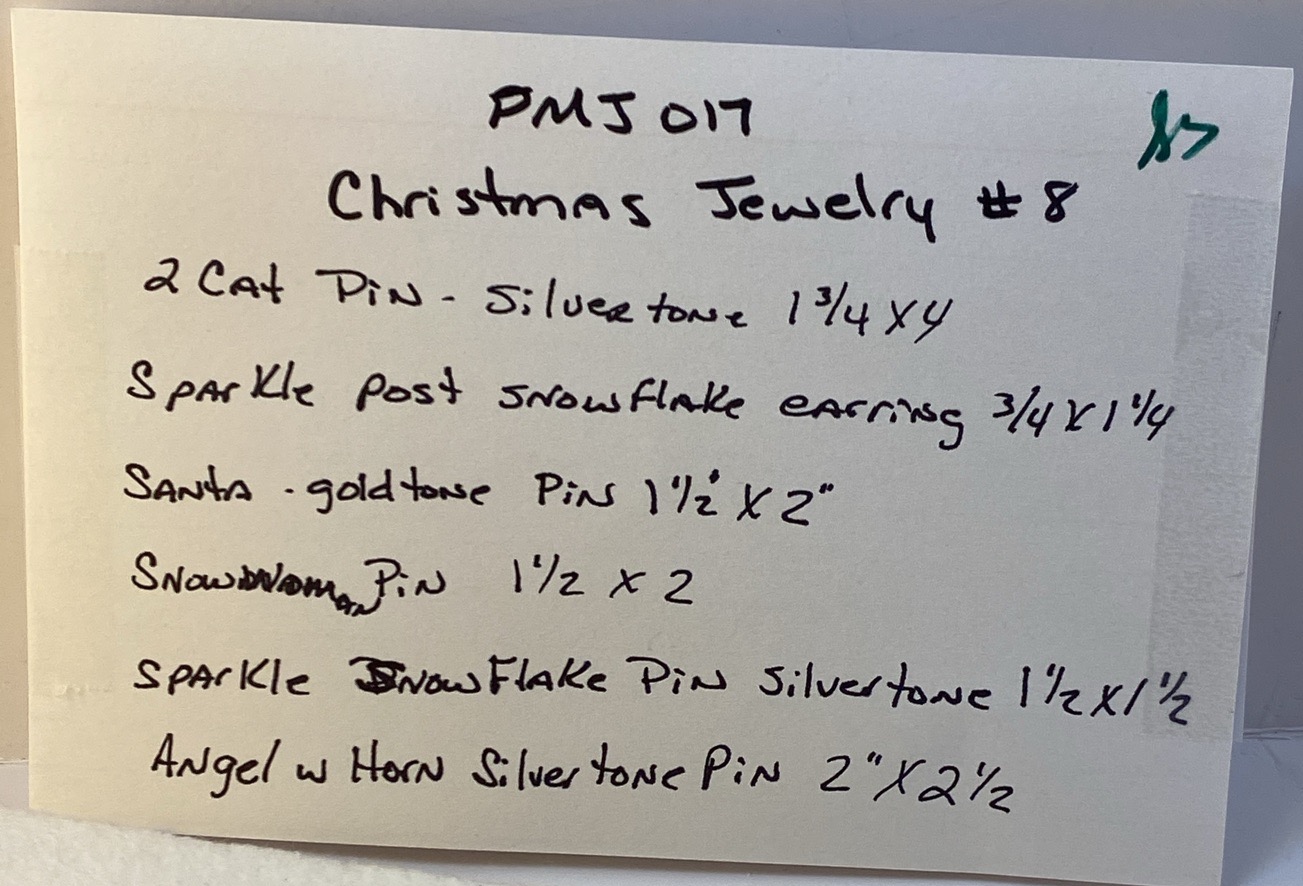 PMJ 017
Christmas Jewelry # 8
2 Cat Pin - Silvertone 1 3/4 X 4
Sparkle post snowflake earring 3/4 X 1 1/4
Santa - goldtone Pin 1 1/2" X 2"
Snowwoman Pin 1 1/2 X 2
Sparkle Snowflake Pin Silvertone 1 1/2 X 1 1/2
Angel w Horn Silvertone Pin 2" X 2 1/2